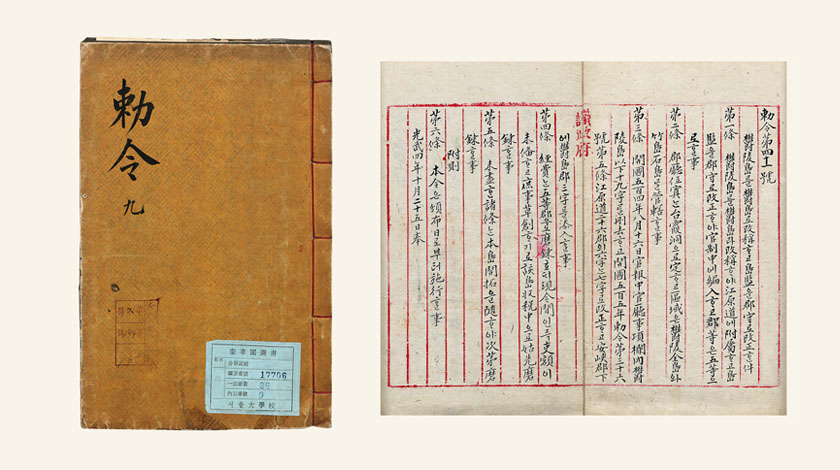 勅令 九
奎章閣圖書
分類記號
圖書番號 17706
一連冊數 26
內訂番號 9
서울大學校
勅令第四十一號
鬱陵島를鬱島로改稱ᄒᆞ고島監을郡守로改正ᄒᆞᆫ件
第一條 鬱陵島를鬱島라改稱ᄒᆞ야江原道에附屬ᄒᆞ고島
監을郡守로改正ᄒᆞ야官制中에編入ᄒᆞ고郡等은五等으
로ᄒᆞᆯ事
第二條 郡廳位寘ᄂᆞᆫ台霞洞으로定ᄒᆞ고區域은鬱陵全島와
竹島石島를管轄ᄒᆞᆯ事
第三條 開國五百四年八月十六日官報中官廳事項欄內鬱
陵島以下十九字를刪去ᄒᆞ고開國五百五年勅令第三十六
號第五條江原道二十六郡의六字ᄂᆞᆫ七字로改正ᄒᆞ고安峽郡下
議政府
에鬱島郡三字를添入ᄒᆞᆯ事
第四條 經費ᄂᆞᆫ五等郡으로磨鍊호ᄃᆡ現今間인즉吏額이
未備ᄒᆞ고庶事草創ᄒᆞ기로該島收稅中으로姑先磨
鍊ᄒᆞᆯ事
第五條 未盡ᄒᆞᆫ諸條ᄂᆞᆫ本島開拓을隨ᄒᆞ야次第磨
鍊ᄒᆞᆯ事
附則
第六條 本令은頒布日로부터施行ᄒᆞᆯ事
光武四年十月二十五日奉